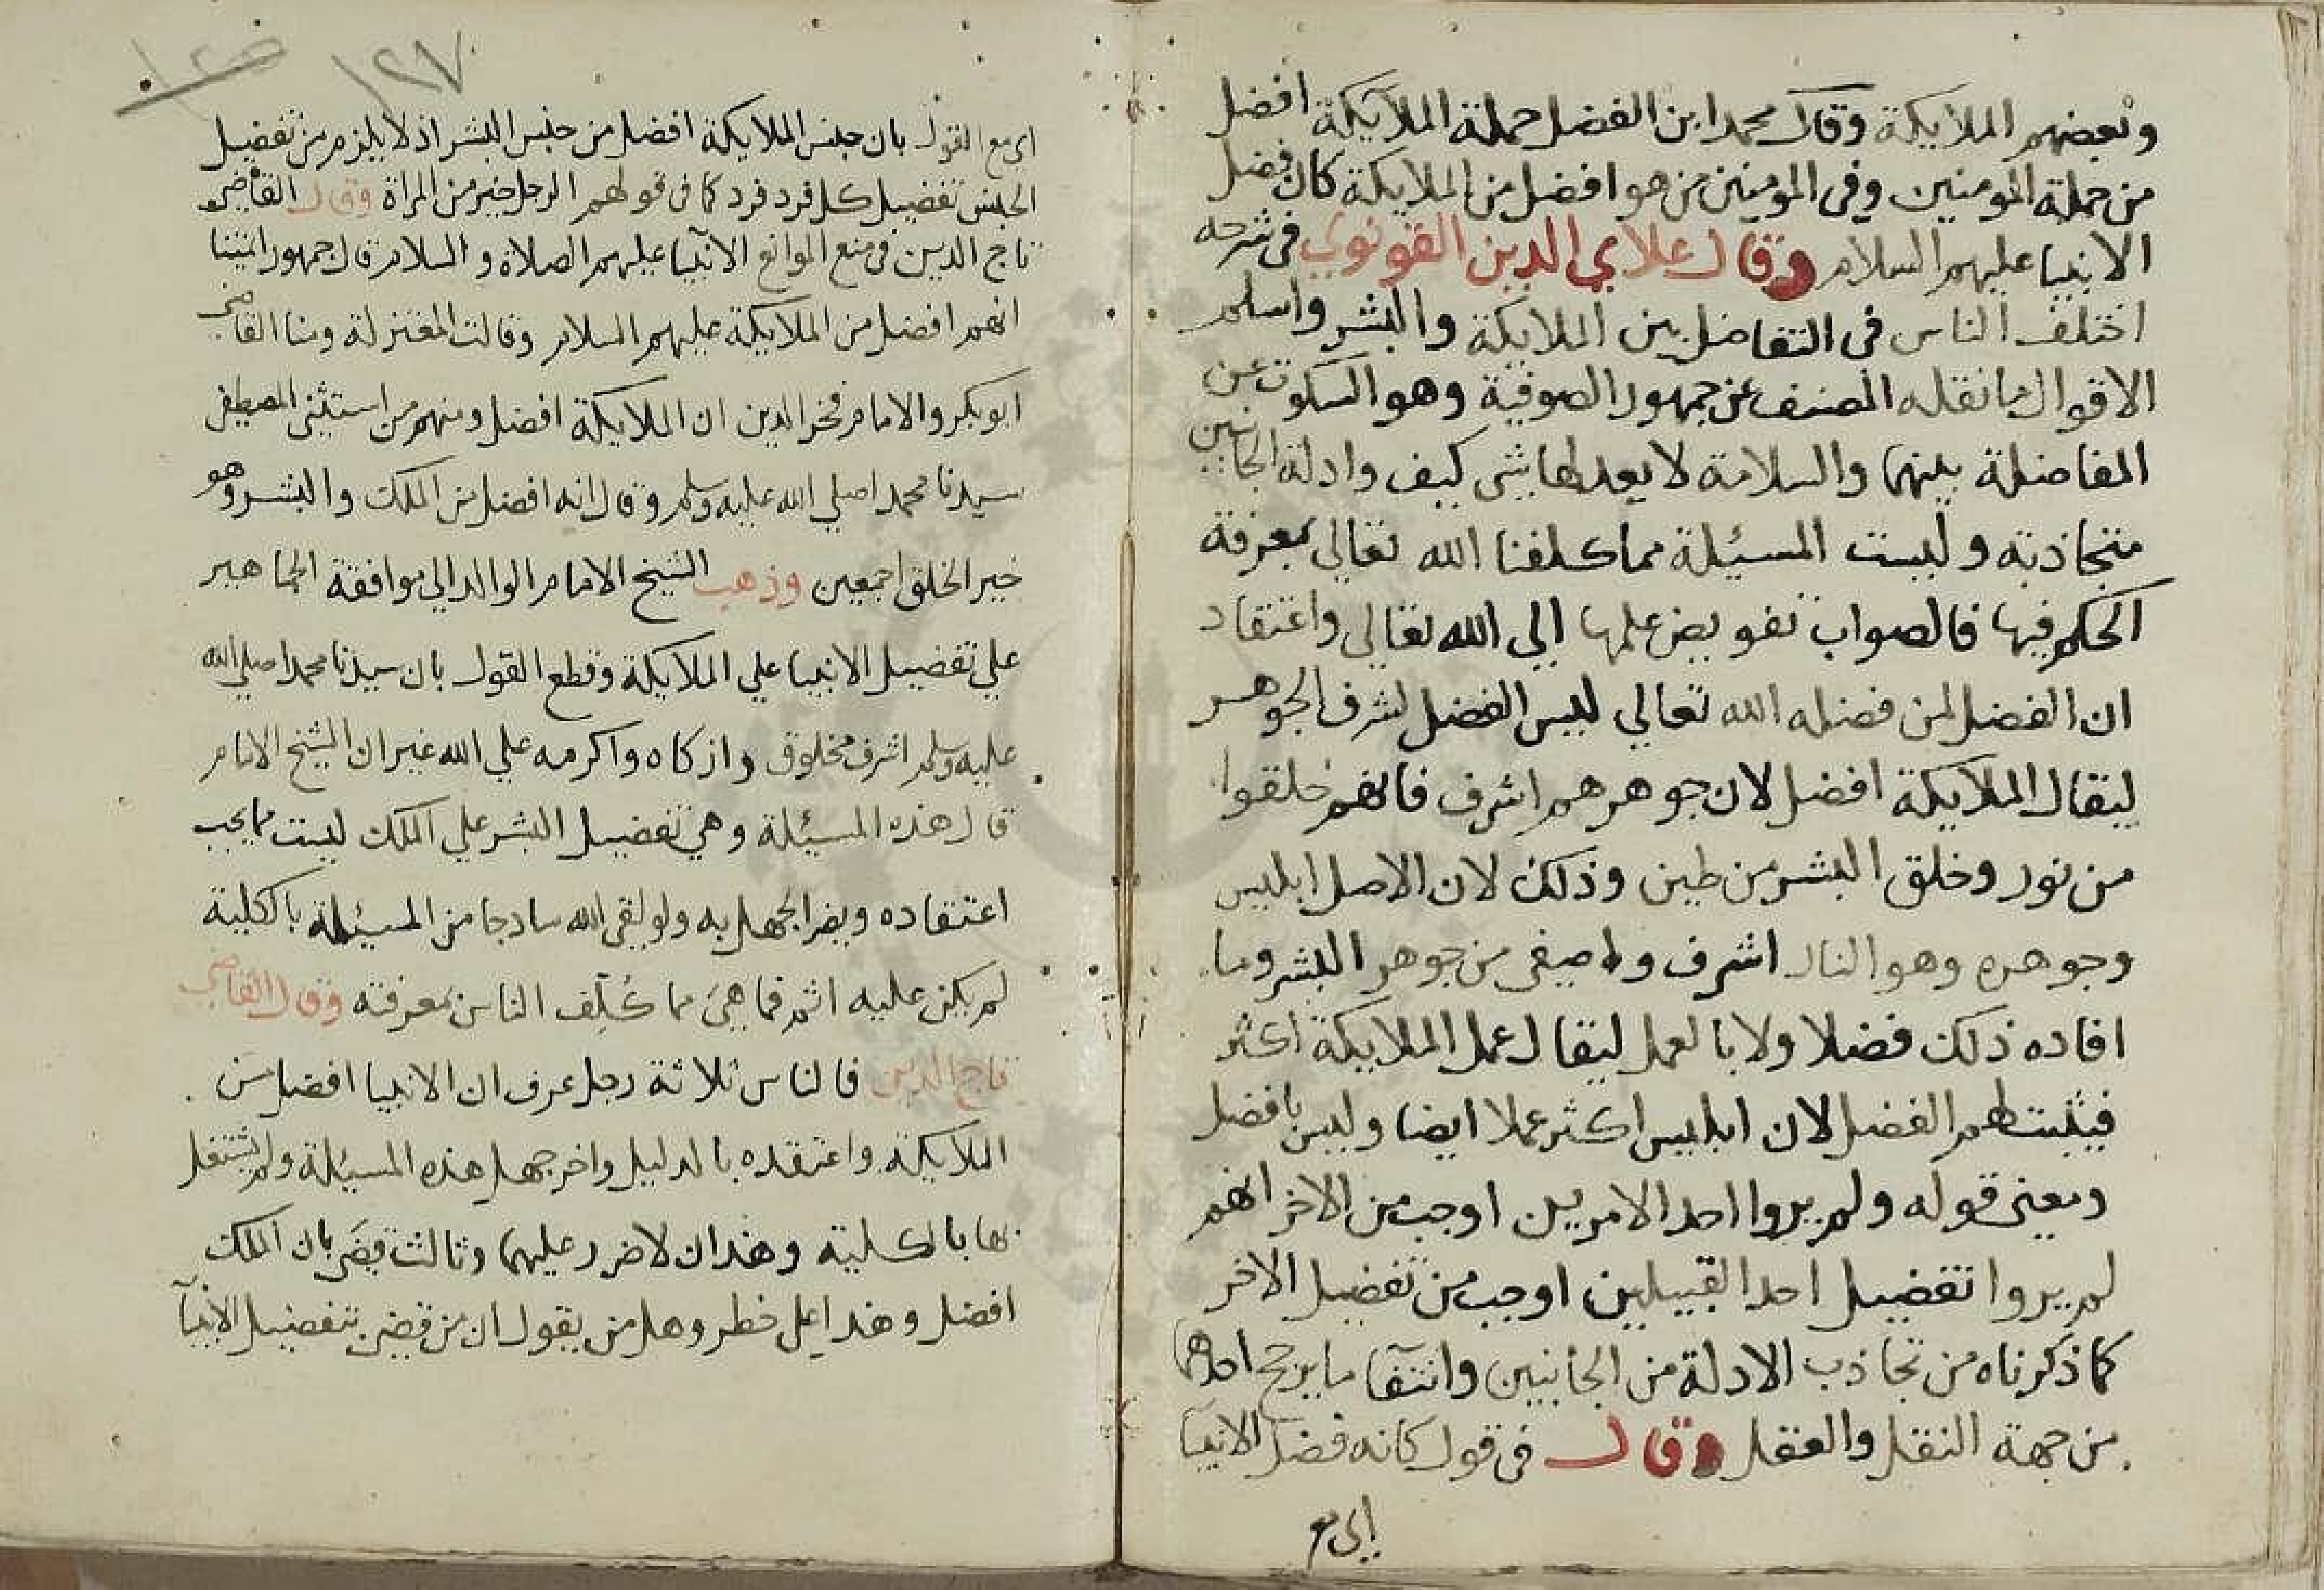 وبعضهم الملايكة وقال محمد ابن الفضل جملة الملآيكة افضل
من جملة المومنين وفى المومنين من هو افضل من الملايكة كان فضل
الانبيا عليهم السلام وقال علاي الدين القونوي فى شرحه
اختلف الناس فى التفاضل بين الملايكة والبشر واسلم
الاقوال ما نقله المصنف عن جمهور الصوفية وهو السكوت عن
المفاضلة بينهما والسلامة لا يعدلها شى كيف وادلة الجانبين
متجاذبة وليست المسئلة مما كلفنا الله تعالى بمعرفة
الحكم فيها فالصواب تفويض علمها الى الله تعالى واعتقاد
ان الفضل لمن فضله الله تعالي ليس الفضل لشرف الجوهر
ليقال الملآيكة افضل لان جوهرهم اشرف فانهم خلقوا
من نور وخلق البشر من طين وذلك لان الاصل ابليس
وجوهره وهو النار اشرف واصفى من جوهر البشر وما
افاده ذلك فضلا ولا بالعمل ليقال عمل الملايكة اكثر
فيثبت لهم الفضل لان ابليس اكثر عملا ايضا وليس بافضل
ومعنى قوله ولم يروا احد الامرين اوجب من الاخر انهم
لم يروا تفضيل احد القبيلين اوجب من تفضيل الاخر
كما ذكرناه من تجاذب الادلة من الجانبين وانتفآ ما يرجح احدهما
من جهة النقل والعقل وقال فى قول كانه فضل الانبيآ
اى مع
اى مع القول بان جنس الملايكة افضل من جنس البشر اذ لا يلزم من تفضيل
الجنس تفضيل كل فرد فرد كما فى قولهم الرجل خير من المراة وقال القاضى
تاج الدين فى منع الموانع الانبيآ عليهم الصلاة والسلام قال جمهور ائمتنا
انهم افضل من الملايكة عليهم السلام وقالت المعتزلة ومنا القاضى
ابو بكر والامام فخر الدين ان الملايكة افضل ومنهم من استثنى المصطفى
سيدنا محمدا صلي الله عليه وسلم وقال انه افضل من الملك والبشر وهو
خير الخلق اجمعين وذهب الشيخ الامام الوالد الى موافقة الجماهير
على تفضيل الانبيا علي الملايكة وقطع القول بان سيدنا محمدا صلى الله
عليه وسلم اشرف مخلوق وازكاه واكرمه علي الله غير ان الشيخ الامام
قال هذه المسئلة وهي تفضيل البشر على الملك ليست مما يجب
اعتقاده ويضر الجهل به ولو لقى الله سادجا من المسئلة بالكلية
لم يكن عليه اثم فما هى مما كُلّف الناس بمعرفته وقال القاضى
تاج الدين فالناس ثلاثة رجل عرف ان الانبيا افضل من
الملايكة واعتقده بالدليل واخر جهل هذه المسئلة ولم يشتغل
بها بالكلية وهذان لا ضرر عليهما وثالث قضى بان الملك
افضل وهذا على خطر وهل من يقول ان من قضى بتفضيل الانبيآ
١٢٧